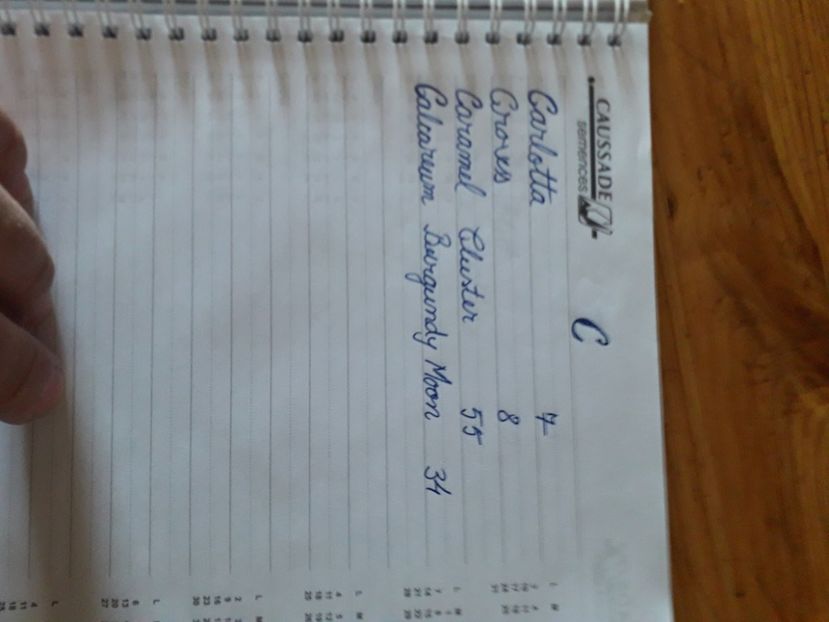 CAUSSADE
semences
C
Carlotta 7
Caramel Cluster 55
Calcareum Burgundy Moon 34